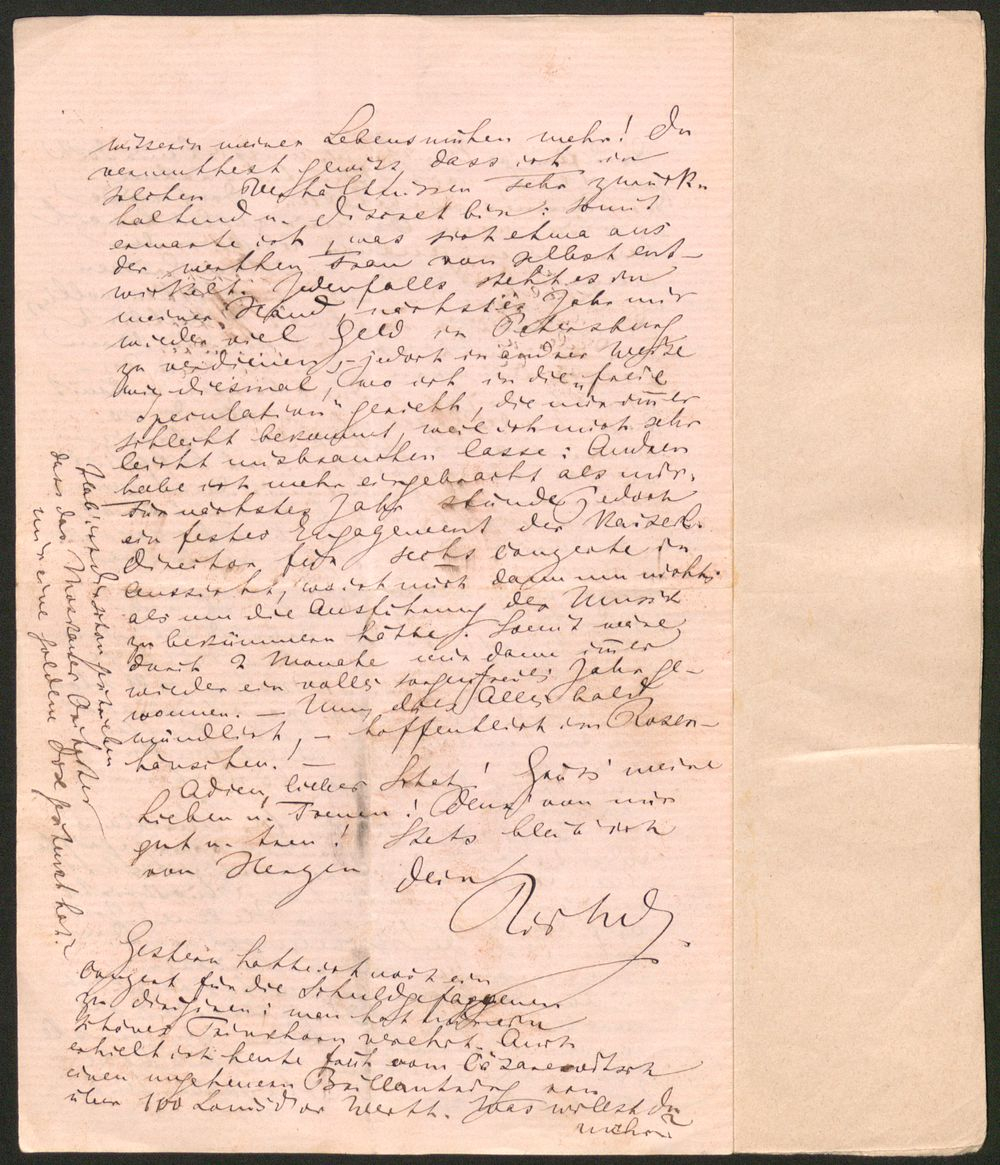 wisserin meiner Lebensmühen mehr! Du
vermuthest gewiss dass ich in
solchen Verhältnissen sehr zurück-
haltend u. discret bin: somit
erwarte ich, was sich etwa aus
der werthen Frau von selbst ent-
wickelt. Jedenfalls steht es in
meiner Hand, nächstes Jahr mir
wieder viel Geld in Petersburg
zu verdienen, – jedoch in andrer Weise
wie diesmal, wo ich in die „freie
Speculation" gerieth, die mir im̅er
schlecht bekommt, weil ich mich sehr
leicht misbrauchen lasse: Andren
habe ich mehr eingebracht als mir.
Für nächstes Jahr stünde jedoch
ein festes Engagement der Kaiserl.
Direction für sechs Conzerte in
Aussicht, wo ich mich dann um nichts
als um die Ausführung der Musik
zu bekümmern hätte. Somit wäre
durch 2 Monate mir dann im̅er
wieder ein volles sorgenfreies Jahr ge-
wonnen. – Nun, dies Alles bald
mündlich, – hoffentlich im Rosen-
häuschen! –
Adieu, lieber Schatz! Grüss' meine
Lieben u. Treuen! Denk' von mir
gut u. treu! Stets bleib' ich
von Herzen Dein
Richard.
Gestern hatte ich noch ein
Conzert für die Schuldgefangenen
zu dirigiren: man hat mir ein
schönes Trinkhorn verehrt. Auch
erhielt ich heute früh vom Cäsarewitsch
einen ungeheuren Brillantring von
über 100 Louisd'or Werth. Was willst Du
mehr?
Hab' ich Dir schon geschrieben
dass das Moskauer Orchester
mir eine goldene Dose geschenkt hat?